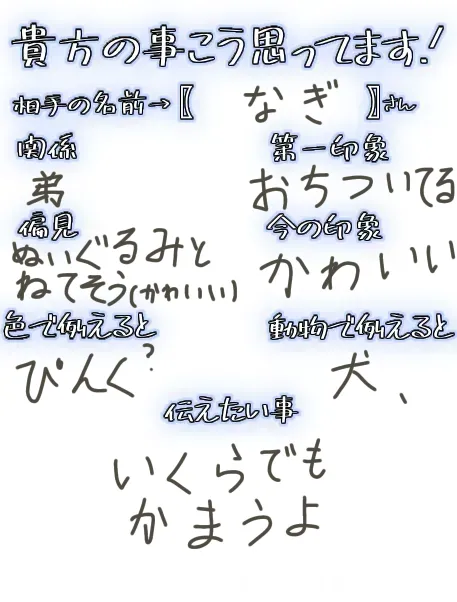 貴方の事こう思ってます!
相手の名前→〖 なぎ 〗さん
関係
弟
第一印象
おちついてる
偏見
ぬいぐるみと
ねてそう(かわいい)
今の印象
かわいい
色で例えると
ぴんく?
動物で例えると
犬、
伝えたい事
いくらでも
かまうよ